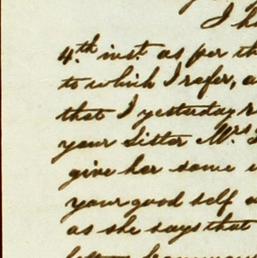 I h
4.th inst. as per th
to which I refer, a
that I yesterday r
your Sister Mrs
give her some
your good self
as she says that